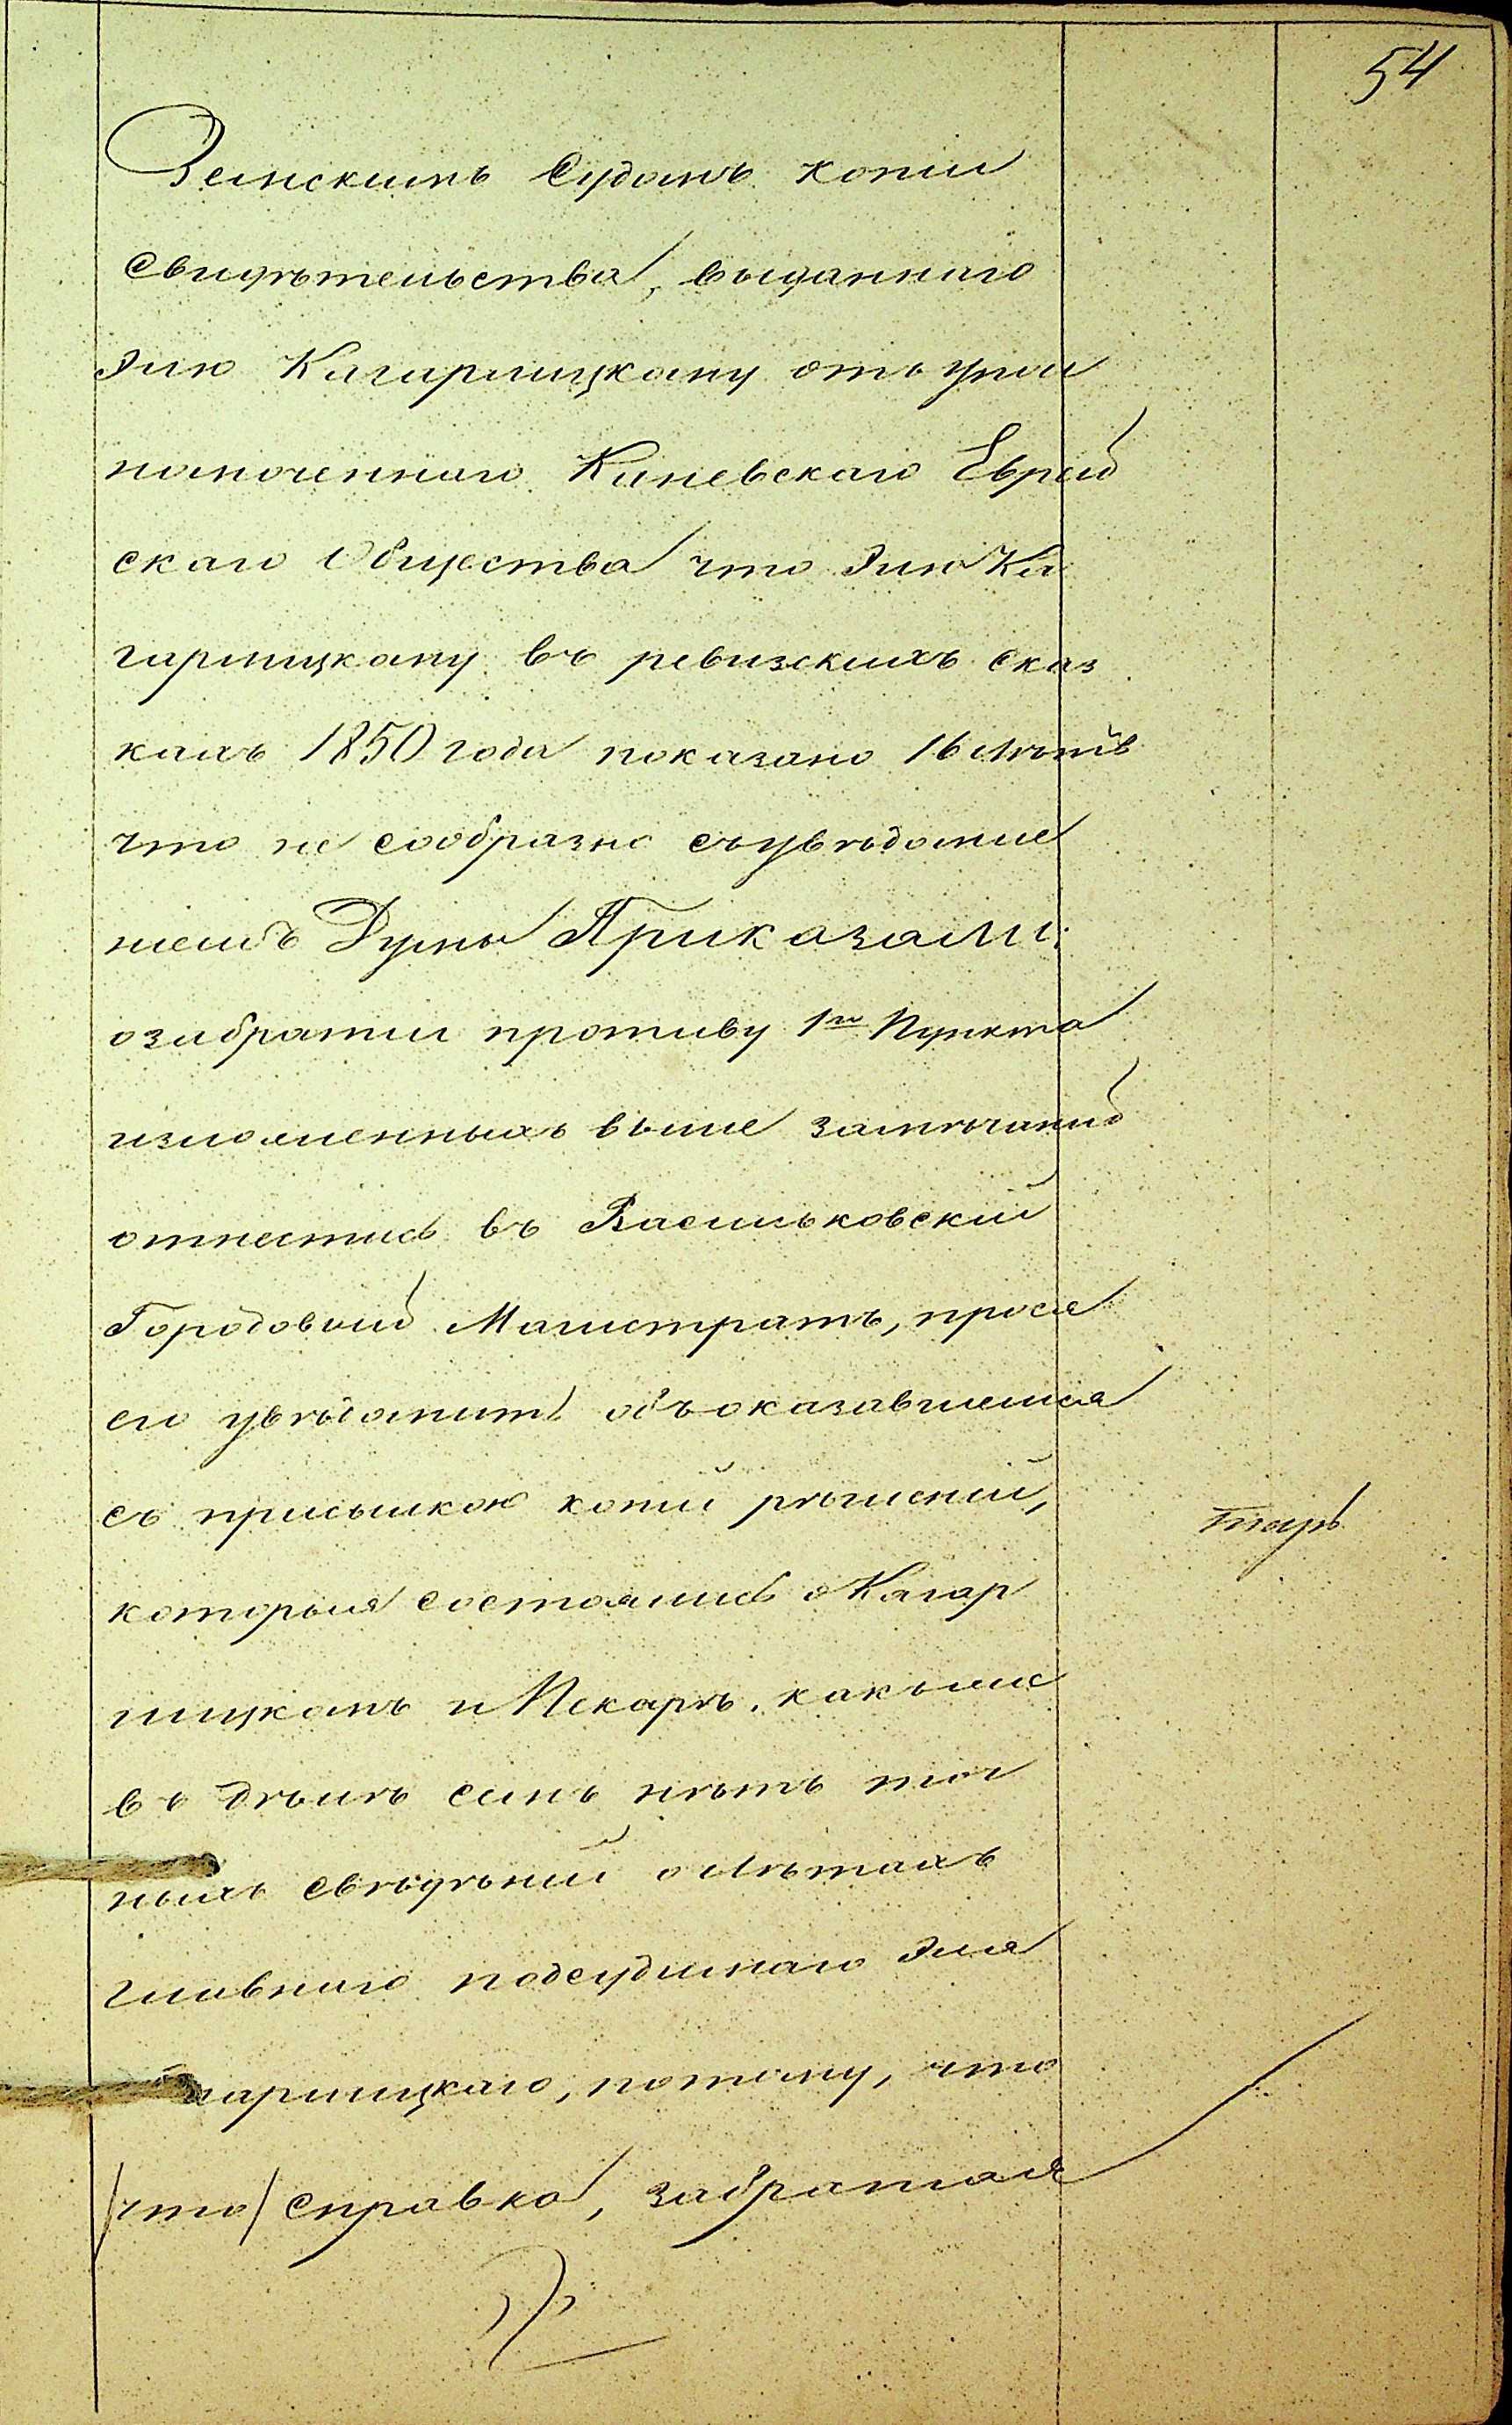 54
Земскимъ Судомъ копіи
свидѣтельства, выданнаго
Элю Кагарлицкому отъ упол
номоченнаго Каневскаго Еврей
скаго Общества что Элю Ка
гарлицкому въ ревизскихъ сказ
кахъ 1850 года показано 16 лѣтъ
что не сообразно съ увѣдомле
ніемъ Думы Приказали:
о забратіи противу 1го Пункта
изложенныхъ выше замѣчаній
отнестись въ Васильковскій
Городовый Магистратъ, прося
его увѣдомить объ оказавшемся
съ присылкою копій рѣшеній,
которыя состоялись о Кагар
лицкомъ и Пекарѣ, какъ же
въ дѣлѣ семъ нѣтъ точ
ныхъ свѣдѣній о лѣтахъ
главнаго подсудимаго Эля
Кагарлицкаго, потому, что
/что/ справка, забратая